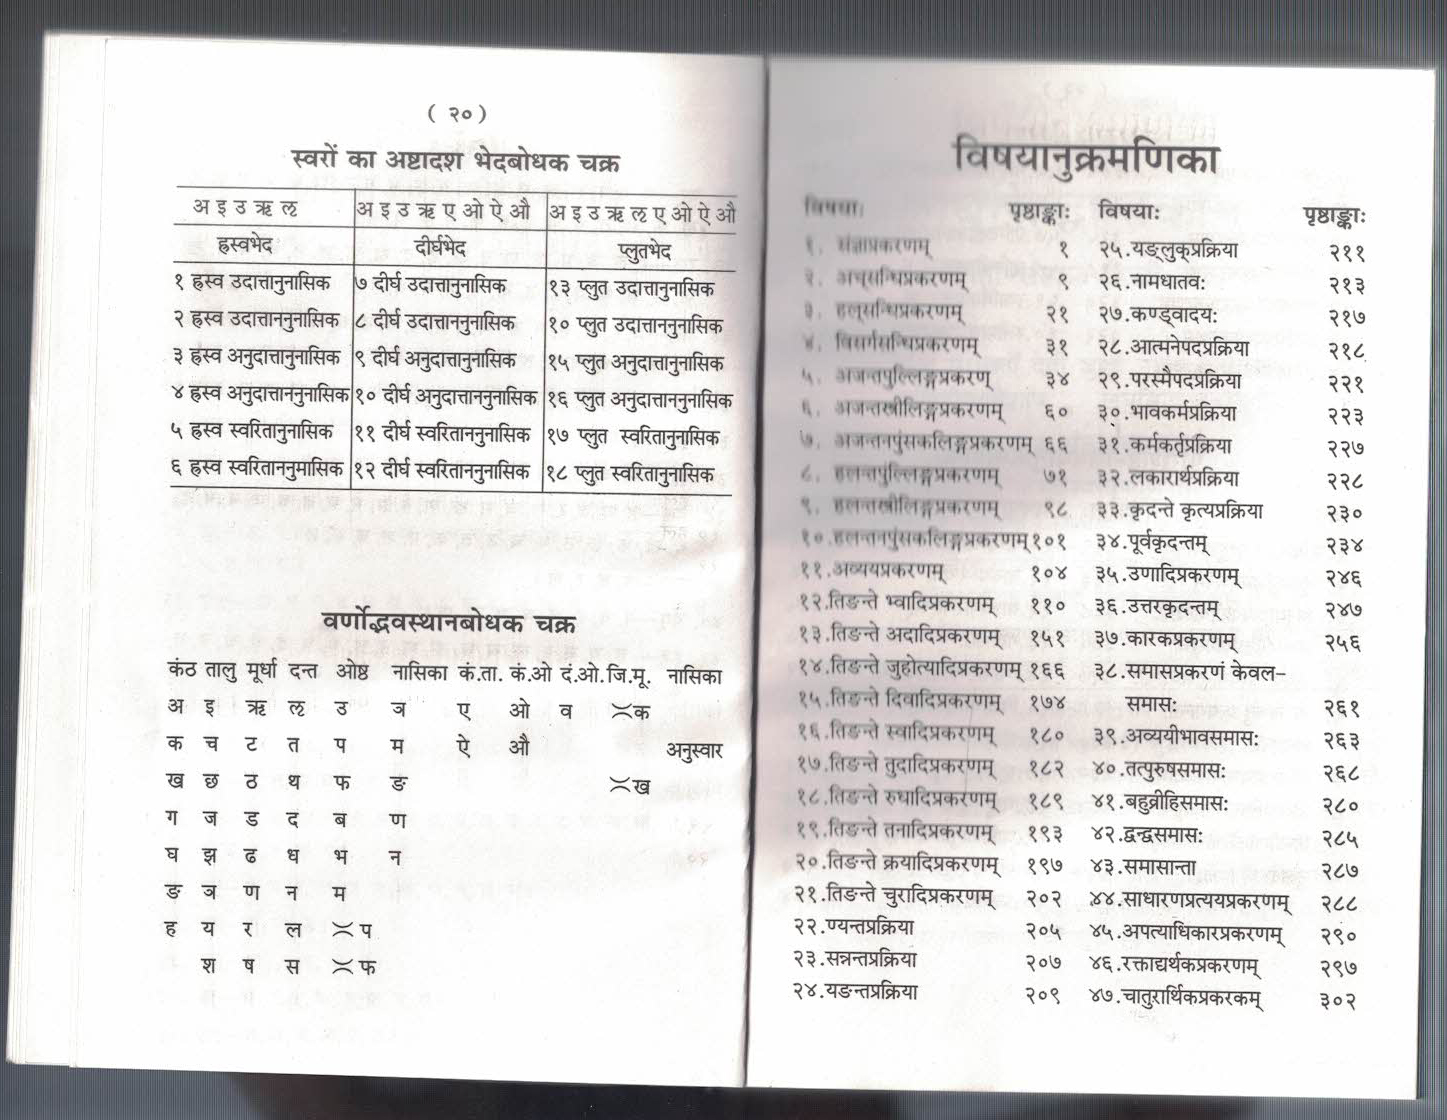 ( २० )
स्वरों का अष्टादश भेदबोधक चक्र
अ इ उ ऋ लृ अ इ उ ऋ ए ओ ऐ औ अ इ उ ऋ लृ ए ओ ऐ औ
ह्रस्वभेद दीर्घभेद प्लुतभेद
१ ह्रस्व उदात्तानुनासिक ७ दीर्घ उदात्तानुनासिक १३ प्लुत उदात्तानुनासिक
२ ह्रस्व उदात्ताननुनासिक ८ दीर्घ उदात्ताननुनासिक १० प्लुत उदात्ताननुनासिक
३ ह्रस्व अनुदात्तानुनासिक ९ दीर्घ अनुदात्तानुनासिक १५ प्लुत अनुदात्तानुनासिक
४ ह्रस्व अनुदात्ताननुनासिक १० दीर्घ अनुदात्ताननुनासिक १६ प्लुत अनुदात्ताननुनासिक
५ ह्रस्व स्वरितानुनासिक ११ दीर्घ स्वरिताननुनासिक १७ प्लुत स्वरितानुनासिक
६ ह्रस्व स्वरिताननुमासिक १२ दीर्घ स्वरिताननुनासिक १८ प्लुत स्वरितानुनासिक
वर्णोद्भवस्थानबोधक चक्र
कंठ तालु मूर्धा दन्त ओष्ठ नासिका कं.ता. कं.ओ दं.ओ. जि.मू. नासिका
अ इ ऋ लृ उ ञ ए ओ व ≍क
क च ट त प म ऐ औ अनुस्वार
ख छ ठ थ फ ङ ≍ख
ग ज ड द ब ण
घ झ ढ ध भ न
ङ ञ ण न म
ह य र ल ≍प
श ष स ≍फ
विषयानुक्रमणिका
विषयाः पृष्ठाङ्काः
१. संज्ञाप्रकरणम् १
२. अच्सन्धिप्रकरणम् ९
३. हल्सन्धिप्रकरणम् २१
४. विसर्गसन्धिप्रकरणम् ३१
५. अजन्तपुल्लिङ्गप्रकरण् ३४
६. अजन्तस्त्रीलिङ्गप्रकरणम् ६०
७. अजन्तनपुंसकलिङ्गप्रकरणम् ६६
८. हलन्तपुंल्लिङ्गप्रकरणम् ७१
९. हलन्तस्त्रीलिङ्गप्रकरणम् ९८
१०.हलन्तनपुंसकलिङ्गप्रकरणम् १०१
११.अव्ययप्रकरणम् १०४
१२.तिङन्ते भ्वादिप्रकरणम् ११०
१३.तिङन्ते अदादिप्रकरणम् १५१
१४.तिङन्ते जुहोत्यादिप्रकरणम् १६६
१५.तिङन्ते दिवादिप्रकरणम् १७४
१६.तिङन्ते स्वादिप्रकरणम् १८०
१७.तिङन्ते तुदादिप्रकरणम् १८२
१८.तिङन्ते रुधादिप्रकरणम् १८९
१९.तिङन्ते तनादिप्रकरणम् १९३
२०.तिङन्ते क्रयादिप्रकरणम् १९७
२१.तिङन्ते चुरादिप्रकरणम् २०२
२२.ण्यन्तप्रक्रिया २०५
२३.सन्नन्तप्रक्रिया २०७
२४.यङन्तप्रक्रिया २०९
विषयाः पृष्ठाङ्काः
२५.यङ्लुक्प्रक्रिया २११
२६.नामधातवः २१३
२७.कण्ड्वादयः २१७
२८.आत्मनेपदप्रक्रिया २१८
२९.परस्मैपदप्रक्रिया २२१
३०.भावकर्मप्रक्रिया २२३
३१.कर्मकर्तृप्रक्रिया २२७
३२.लकारार्थप्रक्रिया २२८
३३.कृदन्ते कृत्यप्रक्रिया २३०
३४.पूर्वकृदन्तम् २३४
३५.उणादिप्रकरणम् २४६
३६.उत्तरकृदन्तम् २४७
३७.कारकप्रकरणम् २५६
३८.समासप्रकरणं केवल-
समासः २६१
३९.अव्ययीभावसमासः २६३
४०.तत्पुरुषसमासः २६८
४१.बहुव्रीहिसमासः २८०
४२.द्वन्द्वसमासः २८५
४३.समासान्ता २८७
४४.साधारणप्रत्ययप्रकरणम् २८८
४५.अपत्याधिकारप्रकरणम् २९०
४६.रक्ताद्यर्थकप्रकरणम् २९७
४७.चातुरार्थिकप्रकरकम् ३०२